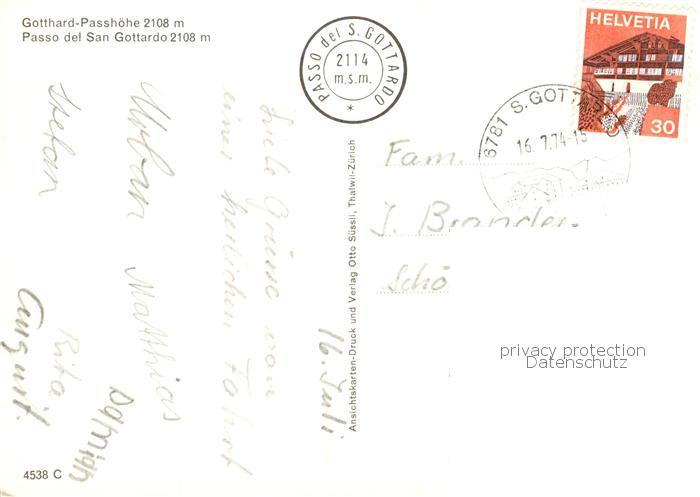 Gotthard-Passhöhe 2108 m
Passo del San Gottardo 2108 m
PASSO del S. GOTTARDO
2114
m.s.m.
*
HELVETIA
30
6781 S. GOTTARDO
16.7.74-15
16. Juli
Liebe Grüsse von
einer herrlichen Fahrt
Urban Matthias
Stefan
Rita
August
Ansichtskarten-Druck und Verlag Otto Süssli, Thalwil-Zürich
Fam.
J.
Schö
privacy protection
Datenschutz
4538 C